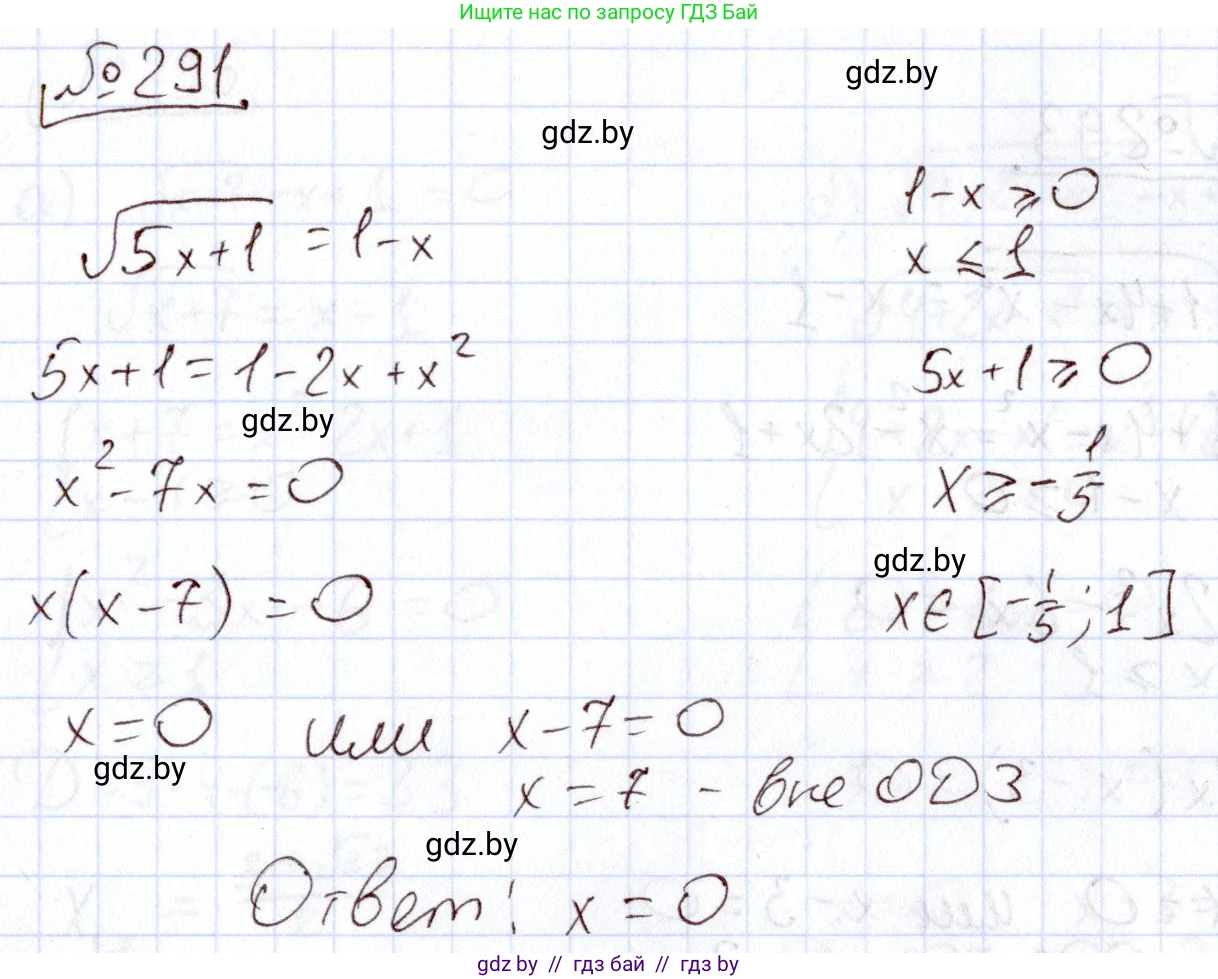 Ищите нас по запросу ГДЗ Бай
№ 291
gdz.by
gdz.by
√5x+1 = 1-x
1-x ⩾ 0
x ⩽ 1
5x+1 = 1-2x+x²
5x+1 ⩾ 0
gdz.by
x²-7x=0
x ⩾ -1/5
gdz.by
x(x-7) = 0
x∈[-1/5; 1]
x=0 или x-7=0
gdz.by
x=7 - вне ОДЗ
gdz.by
Ответ: x=0
gdz by // гдз бай // gdz by